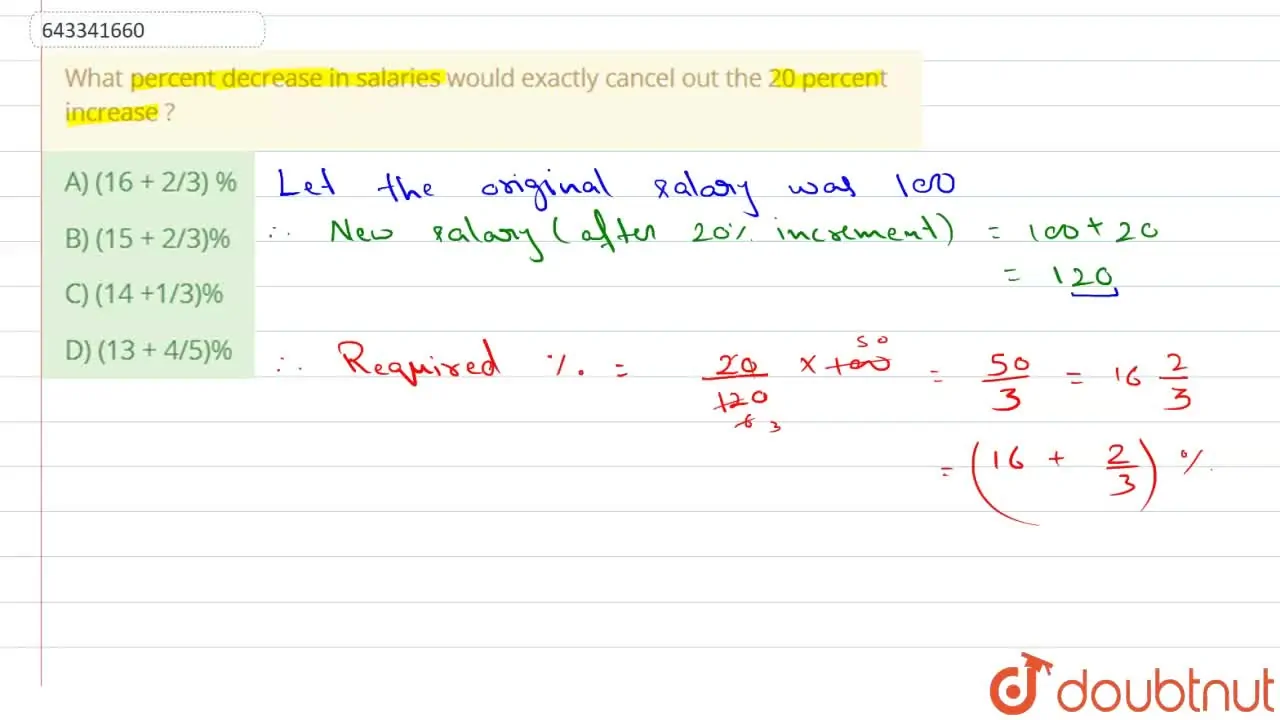 643341660
What percent decrease in salaries would exactly cancel out the 20 percent
increase ?
A) (16 + 2/3) %
B) (15 + 2/3)%
C) (14 +1/3)%
D) (13 + 4/5)%
Let the original salary was 100
∴ New salary (after 20% increment) = 100 + 20
= 120
∴ Required %. = 20/120 × 100 = 50/3 = 16 2/3
50
6 3
= (16 + 2/3) %.
doubtnut